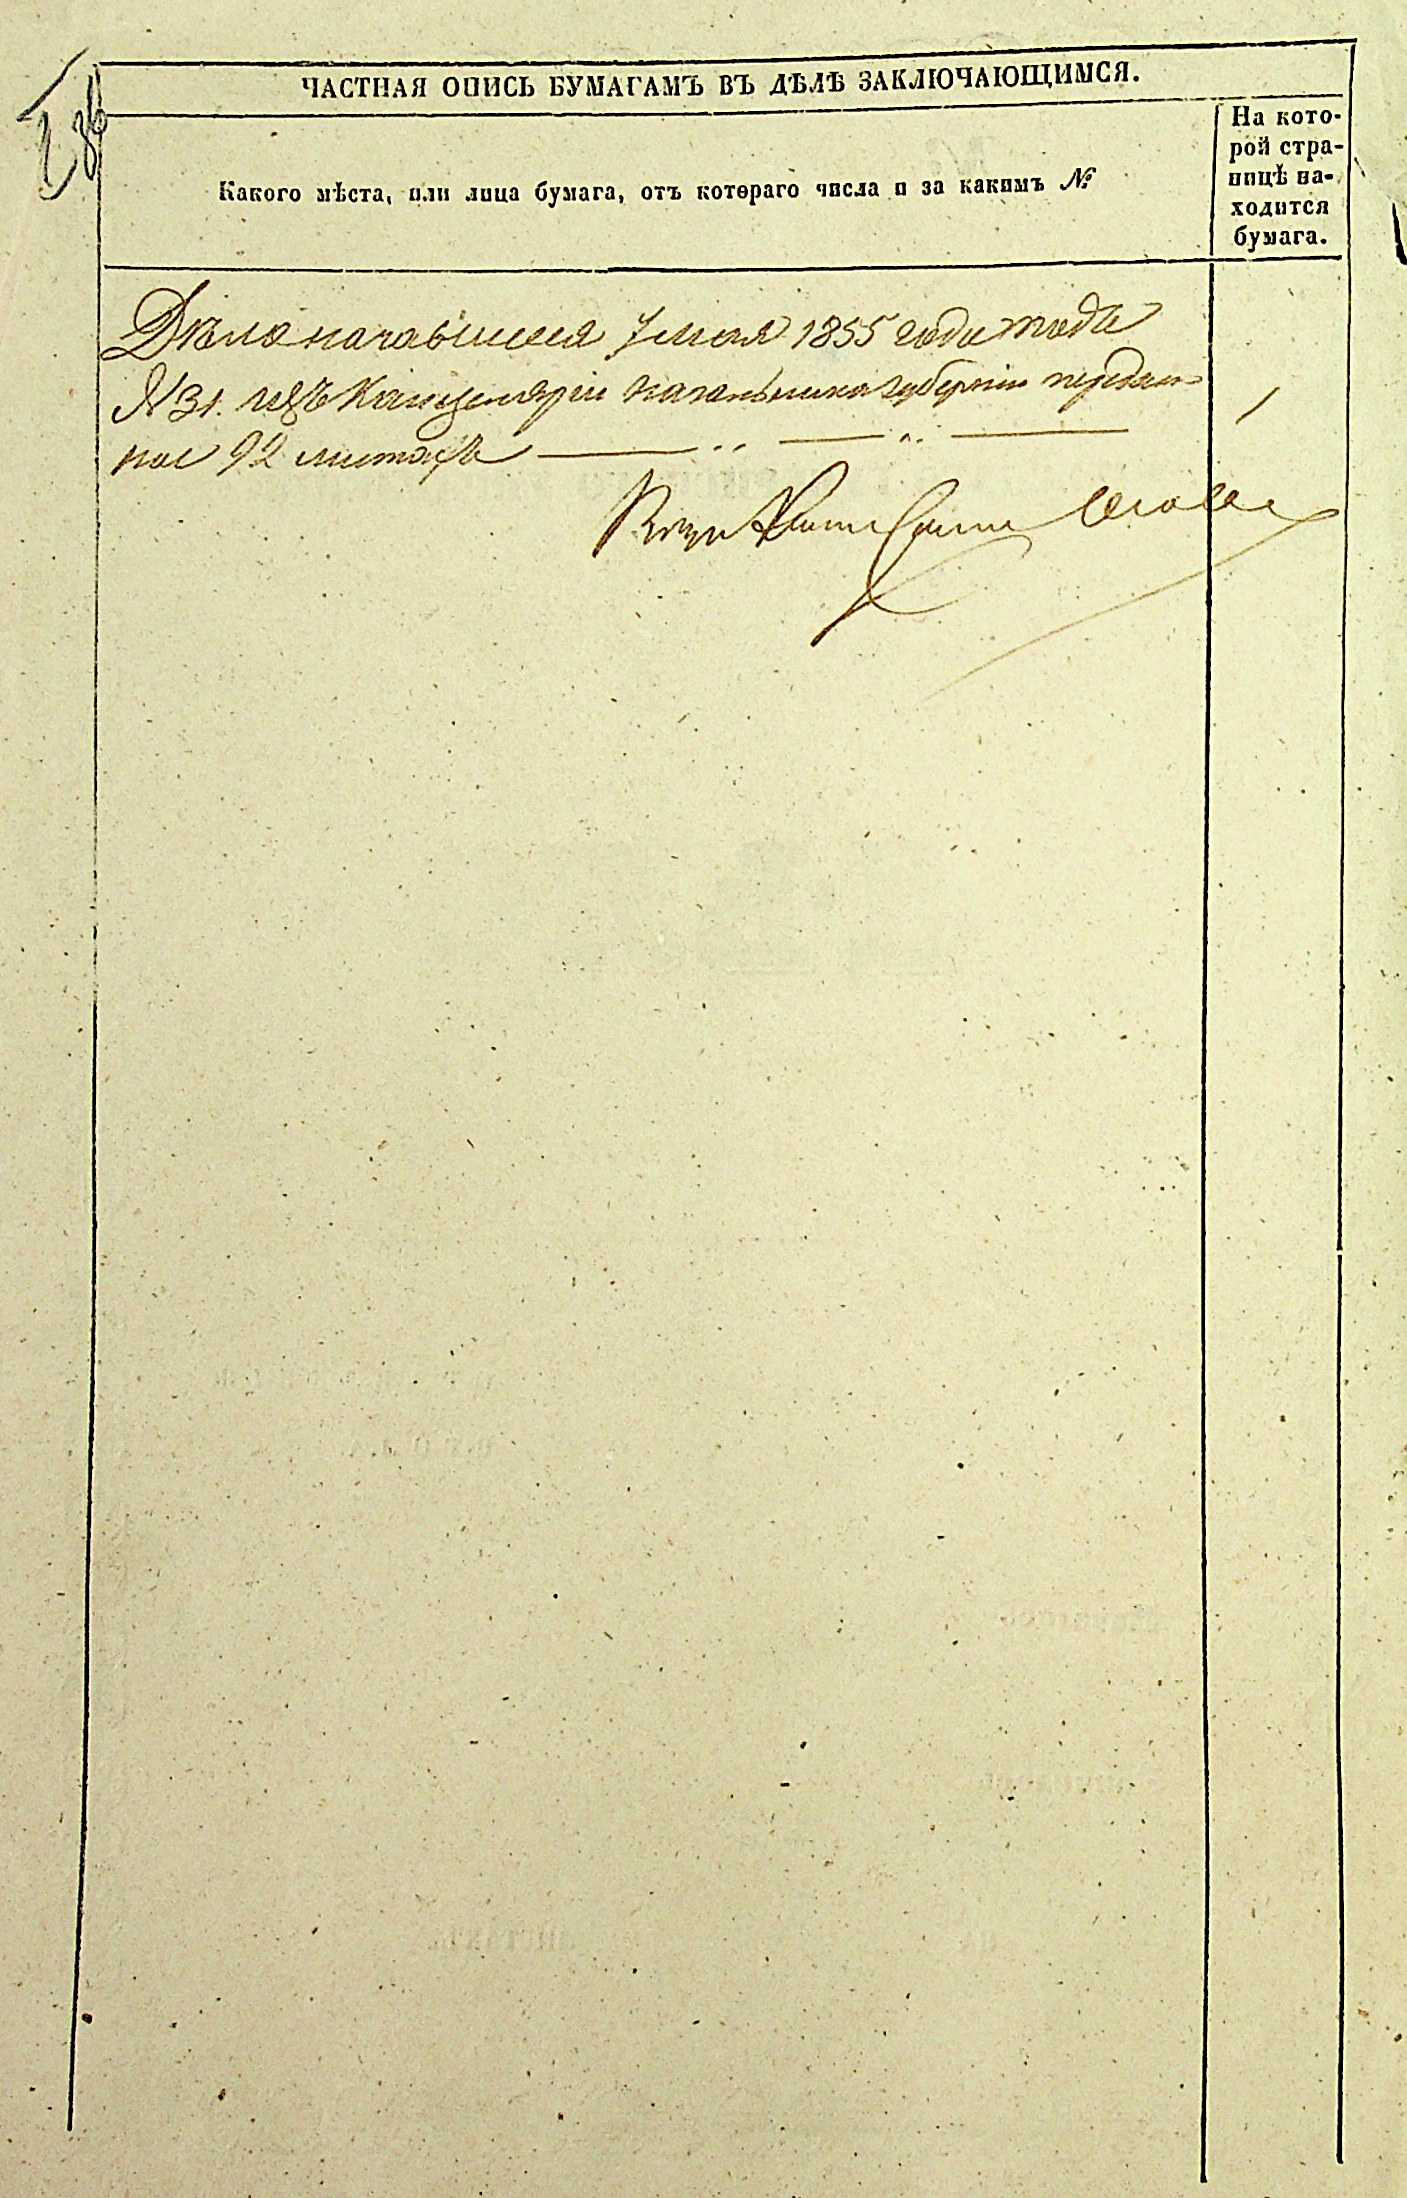 ЧАСТНАЯ ОПИСЬ БУМАГАМЪ ВЪ ДѢЛѢ ЗАКЛЮЧАЮЩИМСЯ.
Какого мѣста, или лица бумага, отъ котораго числа и за какимъ №
На кото-
рой стра-
ницѣ на-
ходится
бумага.
Дѣло начавшееся 7 мая 1855 года подъ
№ 31. изъ Канцеляріи начальника губерніи передан-
ное 92 листахъ
1